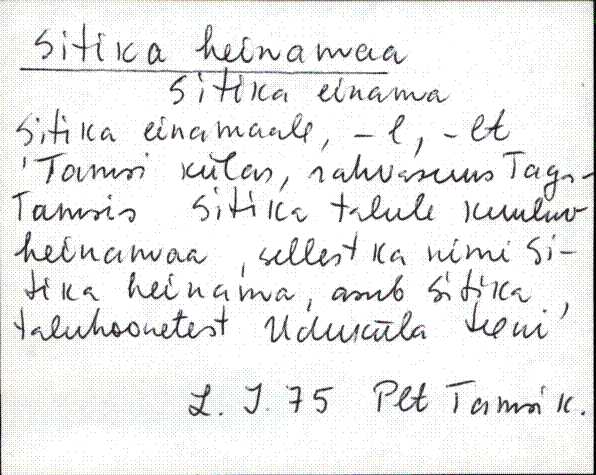 Sitika heinamaa
Sitika einama
Sitika einamaale, -l, -lt
'Tamsi külas, rahvasuus Taga-
Tamsis Sitika talule kuuluv
heinamaa, sellest ka nimi Si-
tika heinama, asub Sitika
taluhoonetest Uduküla teeni'
L. J. 75 Plt Tamsi k.